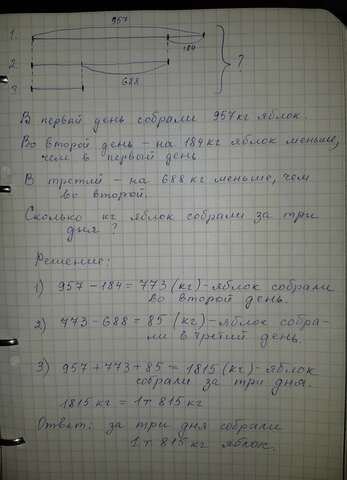 957
1.
184
2.
?
688
3.
В первый день собрали 957 кг яблок.
Во второй день – на 184 кг яблок меньше,
чем в первый день
В третий – на 688 кг меньше, чем
во второй.
Сколько кг яблок собрали за три
дня?
Решение:
1) 957 – 184 = 773 (кг) – яблок собрали
во второй день.
2) 773 – 688 = 85 (кг) – яблок собра-
ли в третий день
3) 957 + 773 + 85 = 1815 (кг) – яблок
собрали за три дня.
1815 кг = 1т 815 кг
Ответ: за три дня собрали
1т 815 кг яблок.